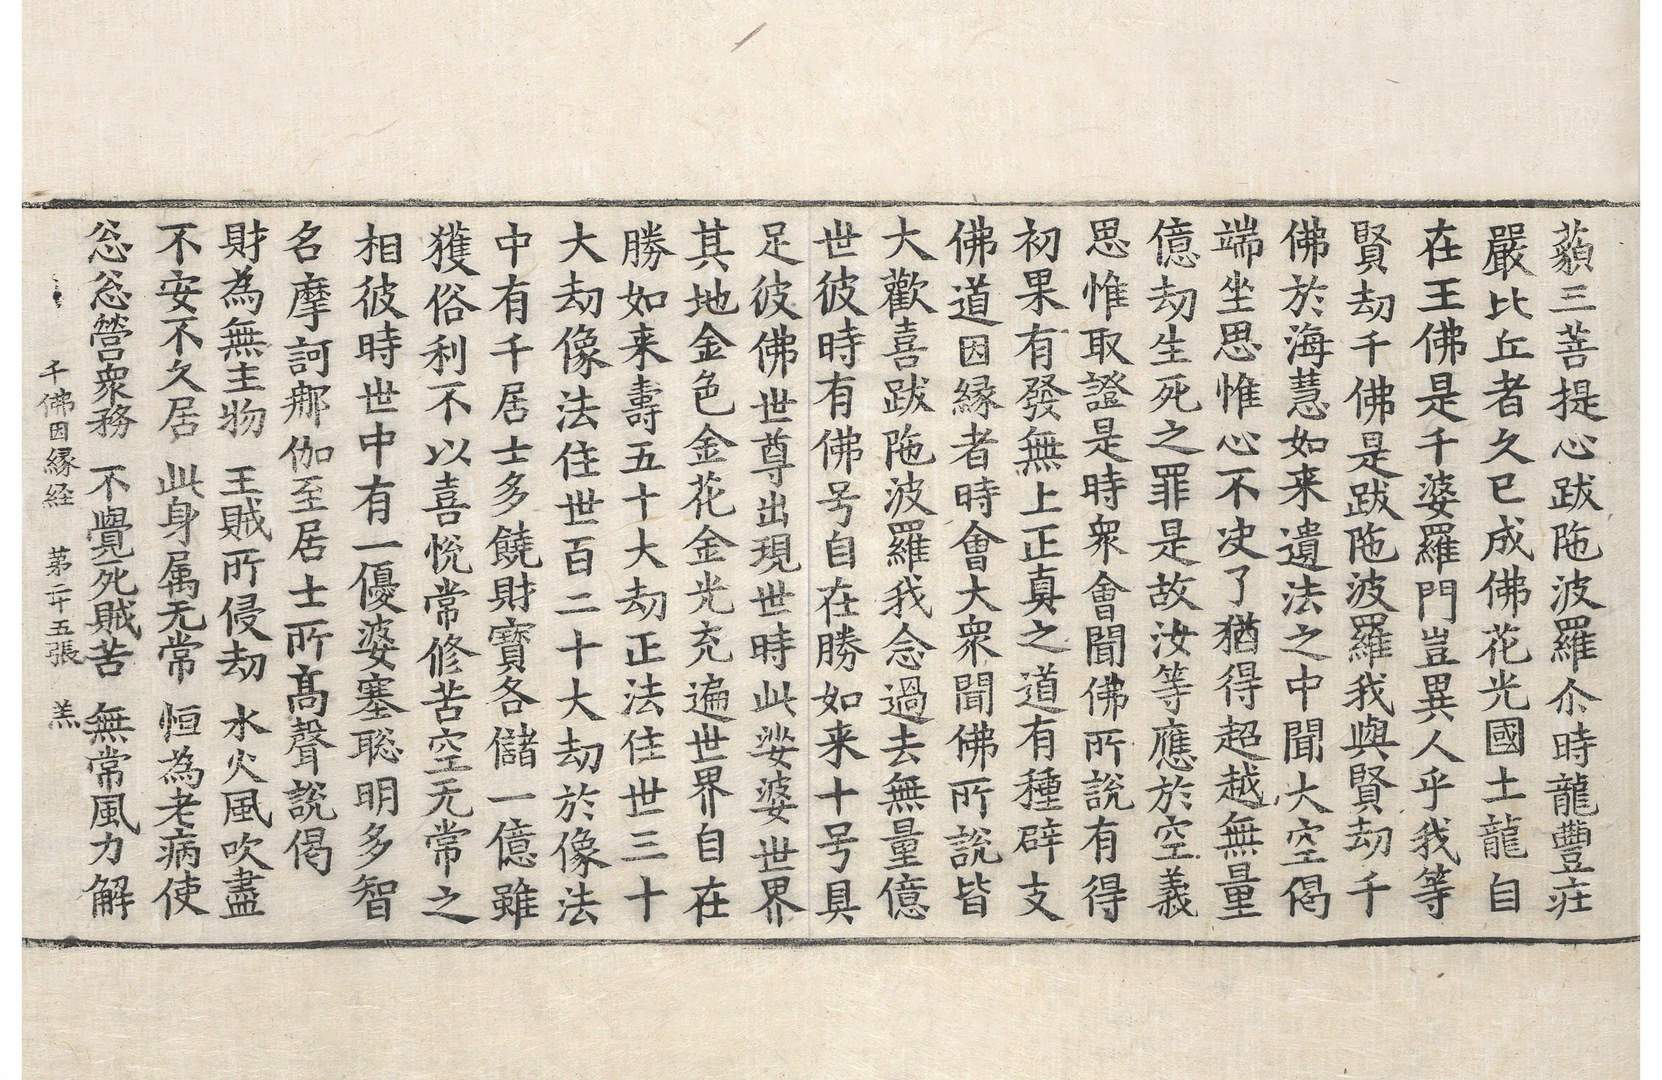 藐三菩提心跋陁波羅尒時龍豐疘
嚴比丘者久已成佛花光國土龍自
在王佛是千婆羅門豈異人乎我等
賢劫千佛是跋陁波羅我與賢劫千
佛於海慧如来遺法之中聞大空偈
端坐思惟心不决了猶得超越無量
億劫生死之罪是故汝等應於空義
思惟取證是時衆會聞佛所說有得
初果有發無上正真之道有種辟支
佛道因縁者時會大衆聞佛所說皆
大歡喜跋陁波羅我念過去無量億
世彼時有佛号自在勝如来十号具
足彼佛世尊出現世時此娑婆世界
其地金色金花金光充遍世界自在
勝如来壽五十大劫正法住世三十
大劫像法住世百二十大劫於像法
中有千居士多饒財寶各儲一億雖
獲俗利不以喜悅常修苦空无常之
相彼時世中有一優婆塞聡明多智
名摩訶那伽至居士所髙聲說偈
財為無主物　王賊所侵劫　水火風吹盡
不安不久居　此身属无常　恒為老病使
忩忩營衆務　不覺死賊苦　無常風力解
千佛因縁経　苐二十五張　羔